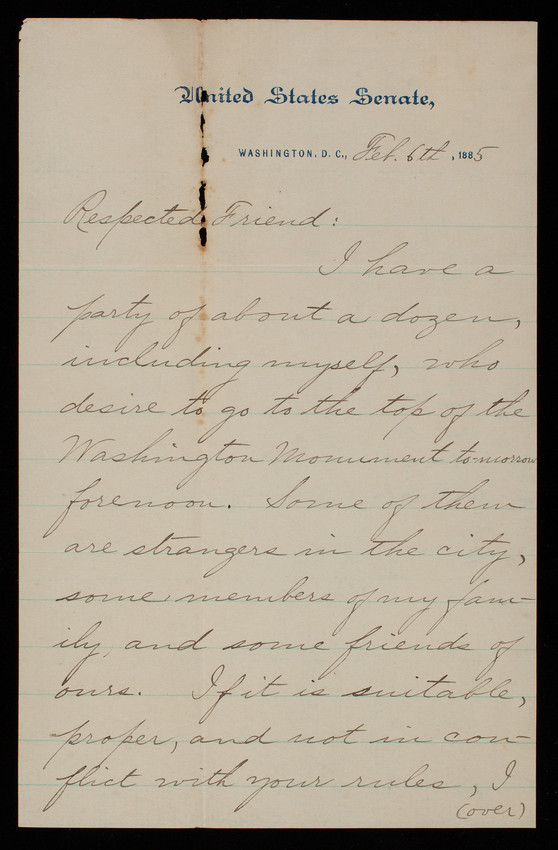 United States Senate,
WASHINGTON, D. C., Feb. 6th, 1885
Respected Friend:
I have a
party of about a dozen,
including myself, who
desire to go to the top of the
Washington Monument to-morrow
forenoon. Some of them
are strangers in the city,
some members of my fam-
ily, and some friends of
ours. If it is suitable,
proper, and not in con-
flict with your rules, I
(over)